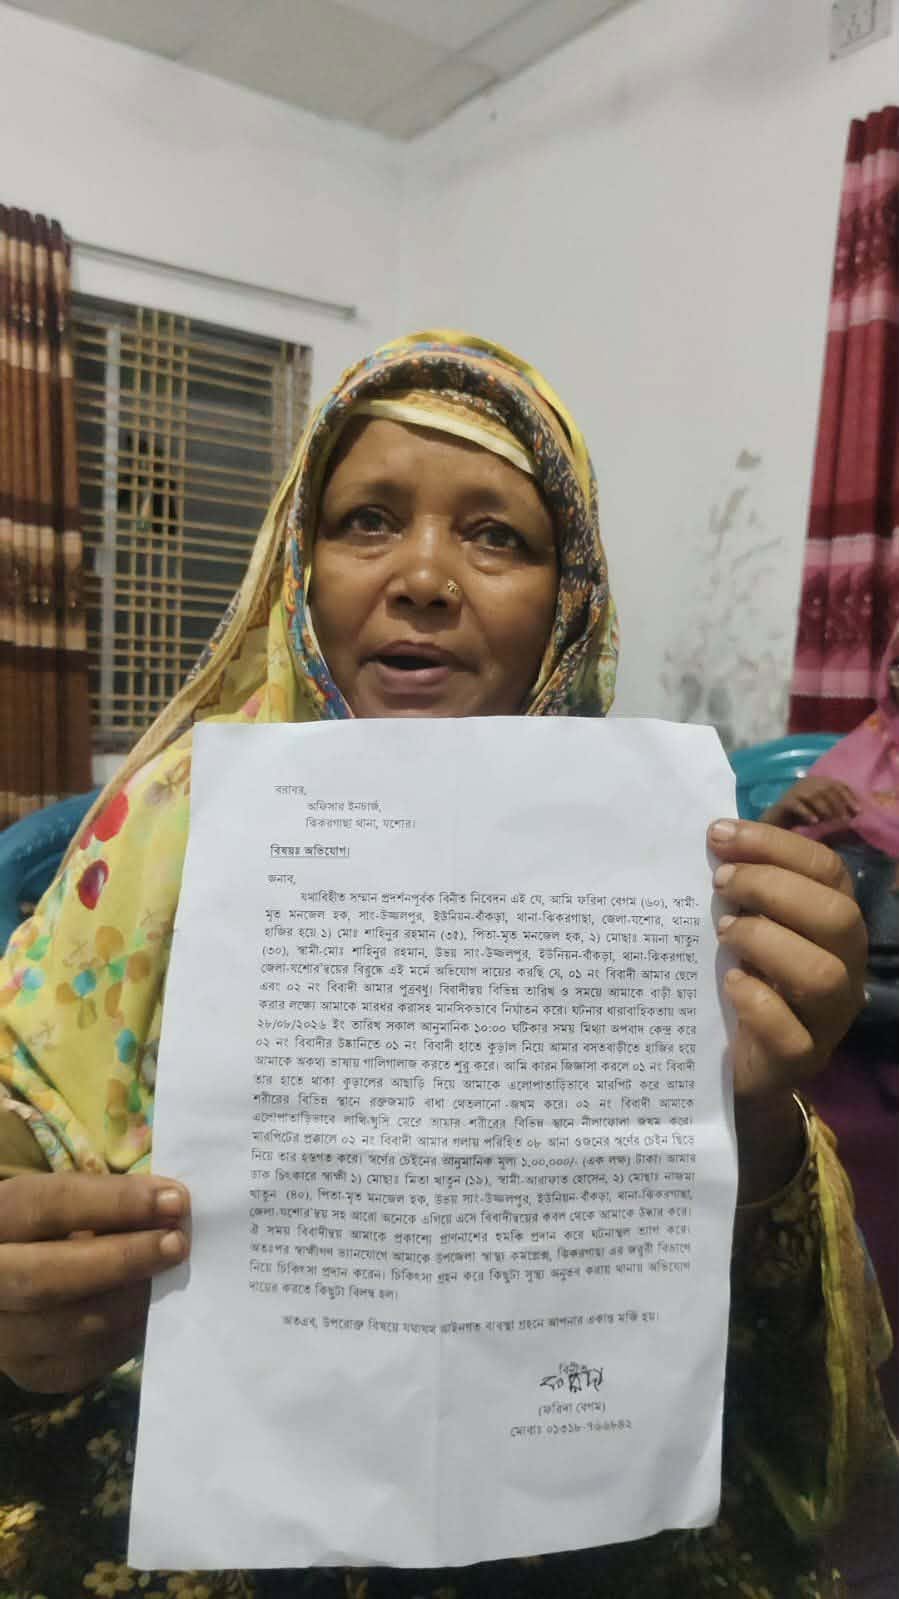 বরাবর,
অফিসার ইনচার্জ,
ঝিকরগাছা থানা, যশোর।
বিষয়ঃ অভিযোগ।
জনাব,
যথাবিহীত সম্মান প্রদর্শনপূর্বক বিনীত নিবেদন এই যে, আমি ফরিদা বেগম (৬০), স্বামী-
মৃত মনজেল হক, সাং-উজ্জলপুর, ইউনিয়ন-বাঁকড়া, থানা-ঝিকরগাছা, জেলা-যশোর, থানায়
হাজির হয়ে ১) মোঃ শাহিনুর রহমান (৩৫), পিতা-মৃত মনজেল হক, ২) মোছাঃ ময়না খাতুন
(৩০), স্বামী-মোঃ শাহিনুর রহমান, উভয় সাং-উজ্জলপুর, ইউনিয়ন-বাঁকড়া, থানা-ঝিকরগাছা,
জেলা-যশোর'দ্বয়ের বিরুদ্ধে এই মর্মে অভিযোগ দায়ের করছি যে, ০১ নং বিবাদী আমার ছেলে
এবং ০২ নং বিবাদী আমার পুত্রবধু। বিবাদীদ্বয় বিভিন্ন তারিখ ও সময়ে আমাকে বাড়ী ছাড়া
করার লক্ষ্যে আমাকে মারধর করাসহ মানসিকভাবে নির্যাতন করে। ঘটনার ধারাবাহিকতায় অদ্য
২৮/০৮/২০২৬ ইং তারিখ সকাল আনুমানিক ১০:০০ ঘটিকার সময় মিথ্যা অপবাদ কেন্দ্র করে
০২ নং বিবাদীর উষ্কানিতে ০১ নং বিবাদী হাতে কুড়াল নিয়ে আমার বসতবাড়ীতে হাজির হয়ে
আমাকে অকথ্য ভাষায় গালিগালাজ করতে শুরু করে। আমি কারন জিজ্ঞাসা করলে ০১ নং বিবাদী
তার হাতে থাকা কুড়ালের আছাড়ি দিয়ে আমাকে এলোপাতাড়িভাবে মারপিট করে আমার
শরীরের বিভিন্ন স্থানে রক্তজমাট বাধা থেতলানো জখম করে। ০২ নং বিবাদী আমাকে
এলোপাতাড়িভাবে লাথি-ঘুসি মেরে আমার শরীরের বিভিন্ন স্থানে নীলাফোলা জখম করে।
মারপিটের প্রক্কালে ০২ নং বিবাদী আমার গলায় পরিহিত ০৮ আনা ওজনের স্বর্ণের চেইন ছিড়ে
নিয়ে তার হস্তগত করে। স্বর্ণের চেইনের আনুমানিক মূল্য ১,০০,০০০/- (এক লক্ষ) টাকা। আমার
ডাক চিৎকারে স্বাক্ষী ১) মোছাঃ মিতা খাতুন (১৯), স্বামী-আরাফাত হোসেন, ২) মোছাঃ নাজমা
খাতুন (৪০), পিতা-মৃত মনজেল হক, উভয় সাং-উজ্জলপুর, ইউনিয়ন-বাঁকড়া, থানা-ঝিকরগাছা,
জেলা-যশোর'দ্বয় সহ আরো অনেকে এগিয়ে এসে বিবাদীদ্বয়ের কবল থেকে আমাকে উদ্ধার করে।
ঐ সময় বিবাদীদ্বয় আমাকে প্রকাশ্যে প্রাণনাশের হুমকি প্রদান করে ঘটনাস্থল ত্যাগ করে।
অতঃপর স্বাক্ষীগণ ভ্যানযোগে আমাকে উপজেলা স্বাস্থ্য কমপ্লেক্স, ঝিকরগাছা এর জরুরী বিভাগে
নিয়ে চিকিৎসা প্রদান করেন। চিকিৎসা গ্রহন করে কিছুটা সুস্থ্য অনুভব করায় থানায় অভিযোগ
দায়ের করতে কিছুটা বিলম্ব হল।
অতএব, উপরোক্ত বিষয়ে যথাযথ আইনগত ব্যবস্থা গ্রহনে আপনার একান্ত মর্জি হয়।
বিনীত
ফরিদা
(ফরিদা বেগম)
মোবাঃ ০১৩১৮-৭৬৬৮৪২